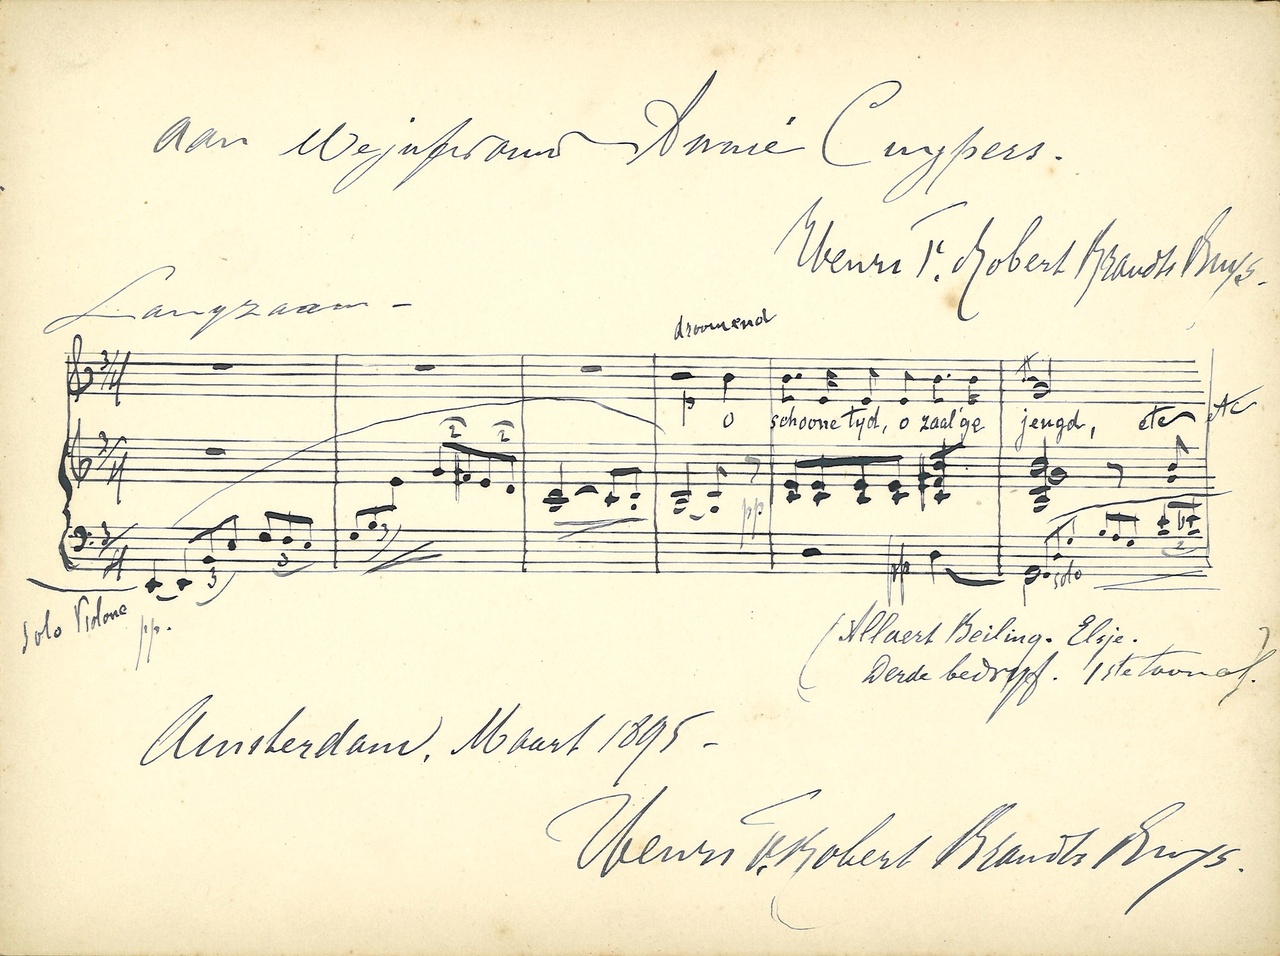 aan Mejufvrouw Annie Cuypers.
Henri F. Robert Brandts Buys.
Langzaam -
droomend
3/4
O schoone tyd, o zaal'ge jeugd, etc
3/4
2 2
pp
3/4
3 3 3 pp solo 2
Solo Violone pp.
(Allaert Beiling. Elsje.
Derde bedryf. 1ste tooneel.)
Amsterdam, Maart 1895 -
Henri F. Robert Brandts Buys.